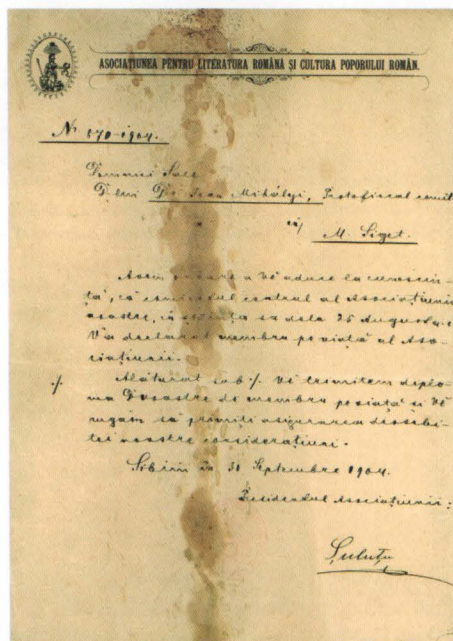 ASOCIAȚIUNEA PENTRU LITERATURA ROMÂNĂ ȘI CULTURA POPORULUI ROMÂN.
Nr. 670-1904.
Domniei Sale
Dlui Dr. Ioan Mihályi, Protofiscal comit
M. Sziget.
Avem onoare a Vă aduce la cunoscin-
ță, că comitetul central al Asociațiunii
noastre, în ședința sa dela 25 August a. c.
V'a declarat membru pe viață al Aso-
ciațiunii.
./. Alăturat sub ./. Vă trimitem diplo-
ma D-voastre de membru pe viață și Vă
rugăm să primiți asigurarea deosebi-
tei noastre considerațiuni.
Sibiiu în Septembre 1904.
Presidentul Asociațiunii:
Șuluțu